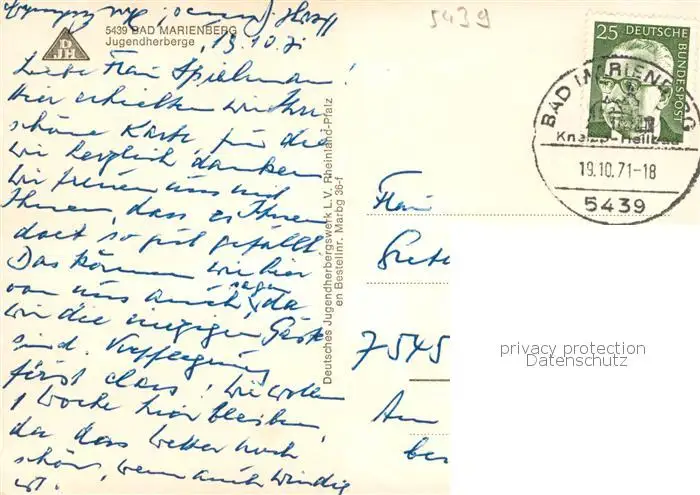 5439 BAD MARIENBERG
Jugendherberge
19.10.71
Liebe Frau Spielmann!
Hier erhielten wir Ihre
schöne Karte, für die
wir herzlich danken
wir freuen uns mit
Ihnen, dass es Ihnen
dort so gut gefällt.
Das können wir hier
von uns auch sagen, da
wir die einzigen Gäste
sind. Verpflegung
first class! Wir wollen
1 Woche hier bleiben,
da das Wetter noch
schön, wenn auch windig
ist.
Deutsches Jugendherbergswerk L.V. Rheinland-Pfalz
en Bestellnr. Marbg 36-f
5439
25 DEUTSCHE BUNDESPOST
BAD MARIENBERG
Kneipp-Heilbad
19.10.71-18
5439
Frau
Grete
7545
Am
bei
privacy protection
Datenschutz